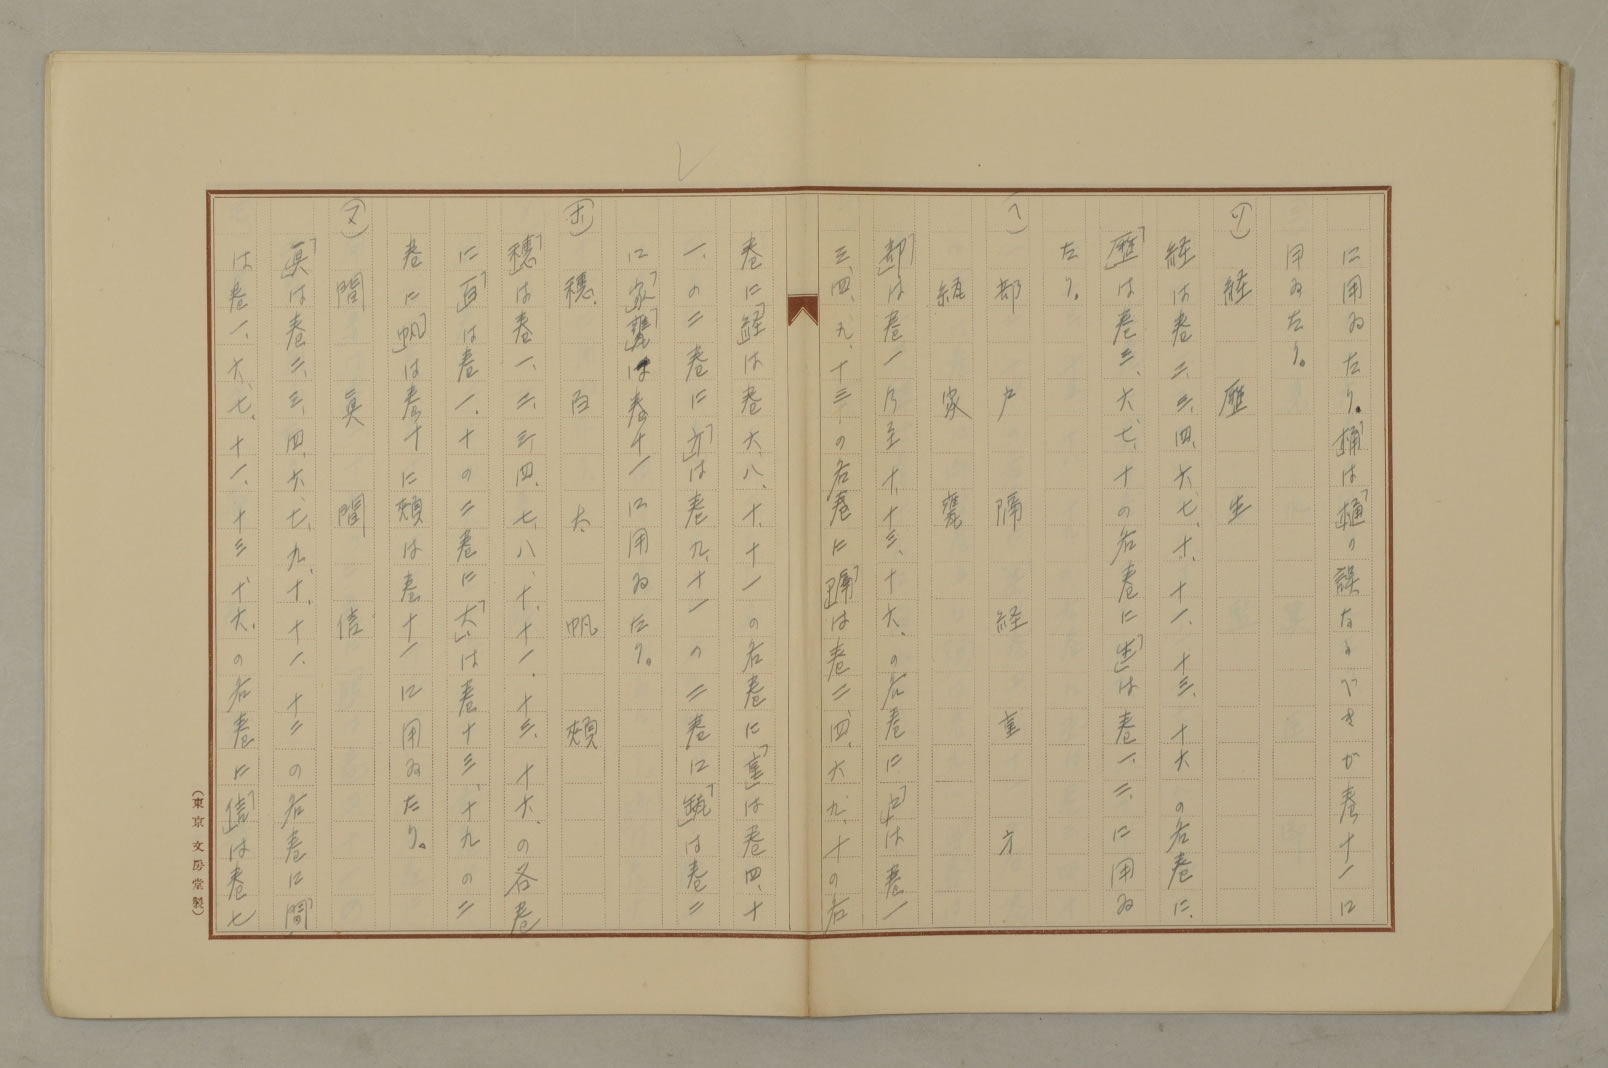 に用ゐたり。「桶」は「樋」の誤なるべきか巻十一に
用ゐたり。
(ワ) 経 歴 生
経は巻二、三、四、六、七、十、十一、十三、十六の各巻に、
「歴」は巻三、六、七、十の各巻に「生」は巻一、二、に用ゐ
たり。
(ヘ) 部 戸 隔 経 重 方
綜 家 甕
「部」は巻一乃至十、十三、十六、の各巻に「戸」は巻一
三、四、九、十三の各巻に「隔」は巻二、四、六、九、十の各
巻に「経」は巻六、八、十、十一の各巻に「重」は巻四、十
一、の二巻に「方」は巻九、十一の二巻に「綜」は巻二
に「家」「甕」は巻十一に用ゐたり。
(ホ) 穂 百 太 帆 頬
「穂」は巻一、二、三、四、七、八、十、十一、十三、十六、の各巻
に「百」は巻一、十の二巻に「太」は巻十三、十九の二
巻に「帆」は巻十に頬は巻十一に用ゐたり。
(マ) 間 眞 閒 信
「眞」は巻二、三、四、六、七、九、十、十一、十二の各巻に「間」
は巻一、六、七、十一、十三、十六、の各巻に「信」は巻七
(東京 文房堂製)